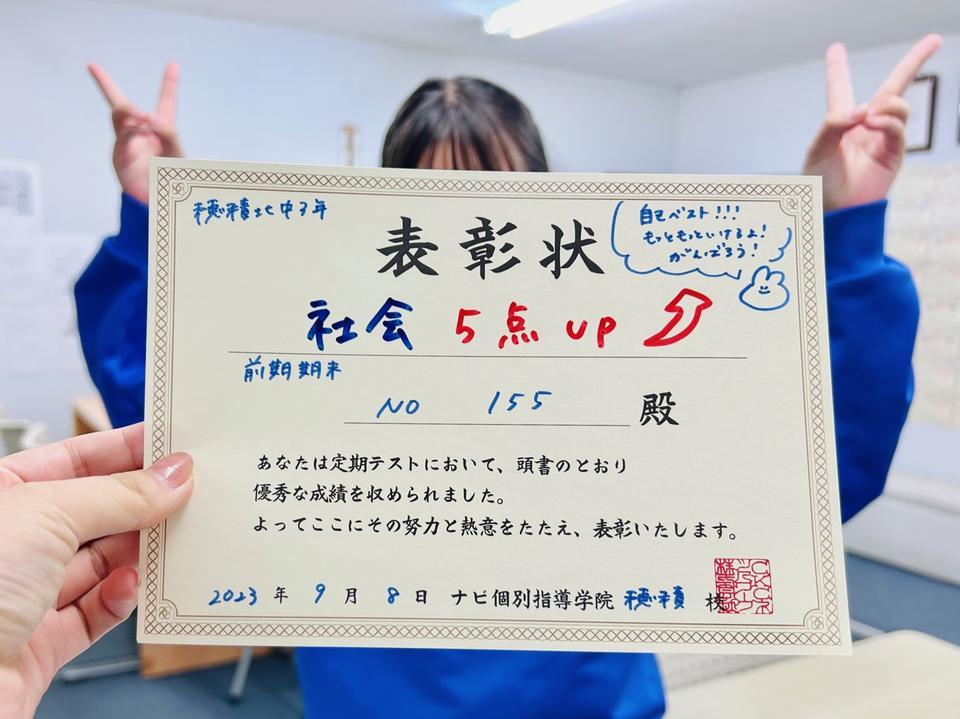 穂積北中3年
表彰状
自己ベスト!!!
もっともっといけるよ!
がんばろう!
社会 5点UP
前期期末
NO 155 殿
あなたは定期テストにおいて、頭書のとおり
優秀な成績を収められました。
よってここにその努力と熱意をたたえ、表彰いたします。
2023年9月8日 ナビ個別指導学院 穂積 校